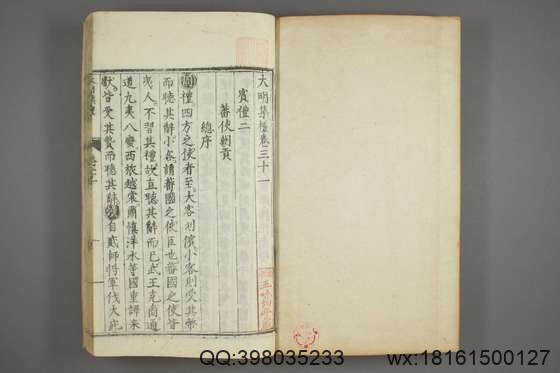 大明集禮卷三十一
賓禮二
蕃使朝貢
總序
周禮四方之使者至大客則擯小客則受其幣
而聽其辭小客謂蕃國之使臣也蕃國之使皆
夷人不習其禮故直聽其辭而已武王克商通
道九夷八蠻西旅越裳肅慎洋水等國重譯來
獻皆受其贄而聽其辭漢自貳師將軍伐大宛
QQ:398035233
wx:18161500127